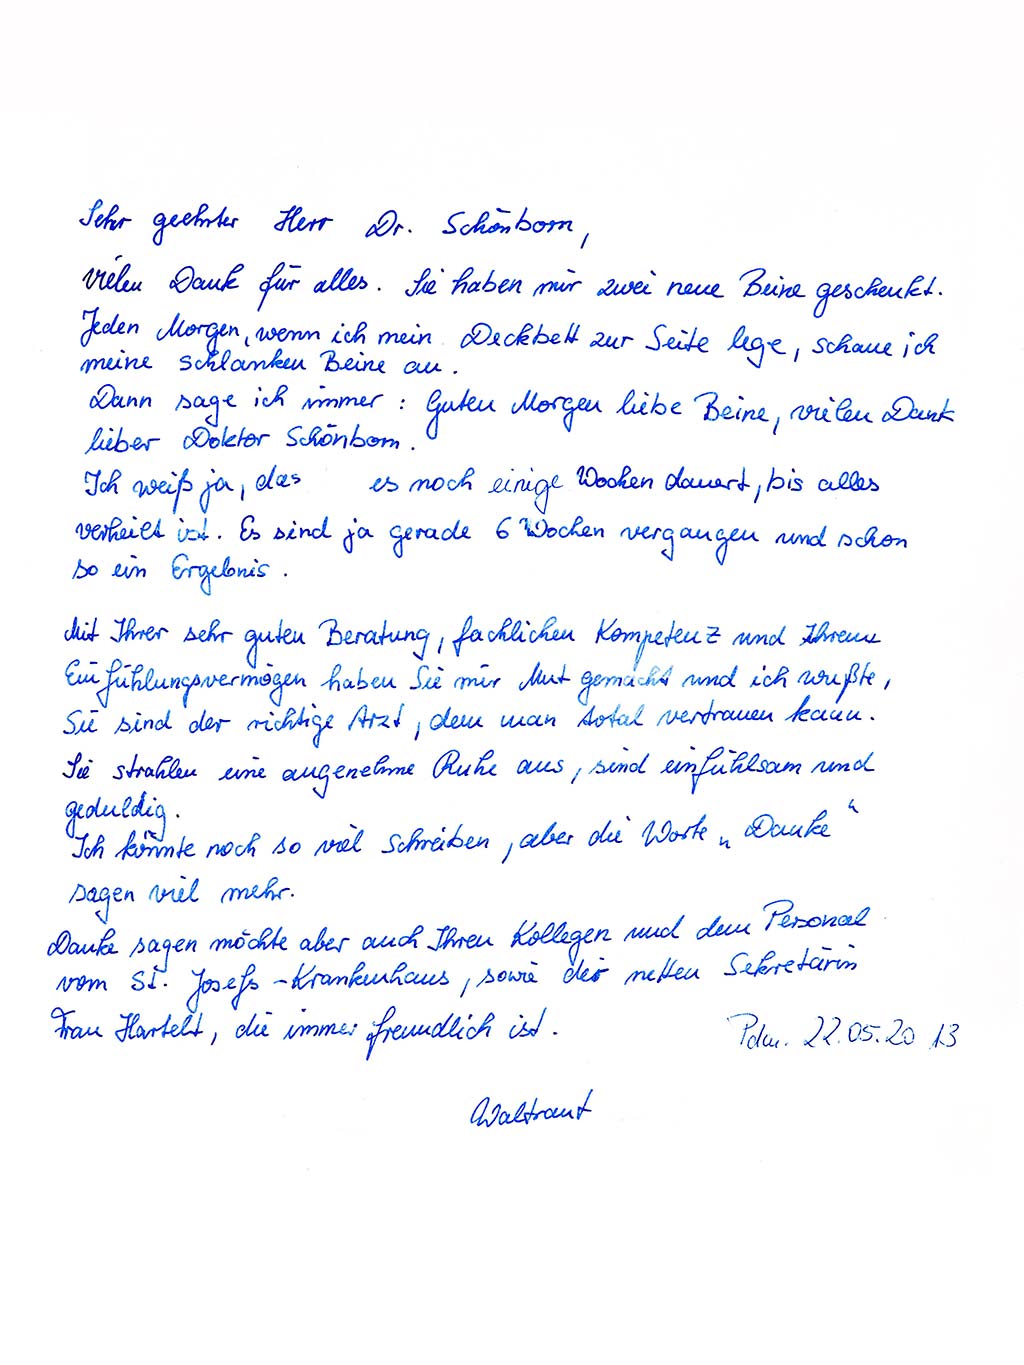 Sehr geehrter Herr Dr. Schönborn,
vielen Dank für alles. Sie haben mir zwei neue Beine geschenkt.
Jeden Morgen, wenn ich mein Deckbett zur Seite lege, schaue ich
meine schlanken Beine an.
Dann sage ich immer: Guten Morgen liebe Beine, vielen Dank
lieber Doktor Schönborn.
Ich weiß ja, das es noch einige Wochen dauert, bis alles
verheilt ist. Es sind ja gerade 6 Wochen vergangen und schon
so ein Ergebnis.
Mit Ihrer sehr guten Beratung, fachlichen Kompetenz und Ihrem
Einfühlungsvermögen haben Sie mir Mut gemacht und ich wußte,
Sie sind der richtige Arzt, dem man total vertrauen kann.
Sie strahlen eine angenehme Ruhe aus, sind einfühlsam und
geduldig.
Ich könnte noch so viel schreiben, aber die Worte „Danke“
sagen viel mehr.
Danke sagen möchte aber auch Ihren Kollegen und dem Personal
vom St. Josefs-Krankenhaus, sowie der netten Sekretärin
Frau Hartelt, die immer freundlich ist.
Pdm. 22.05.2013
Waltraut